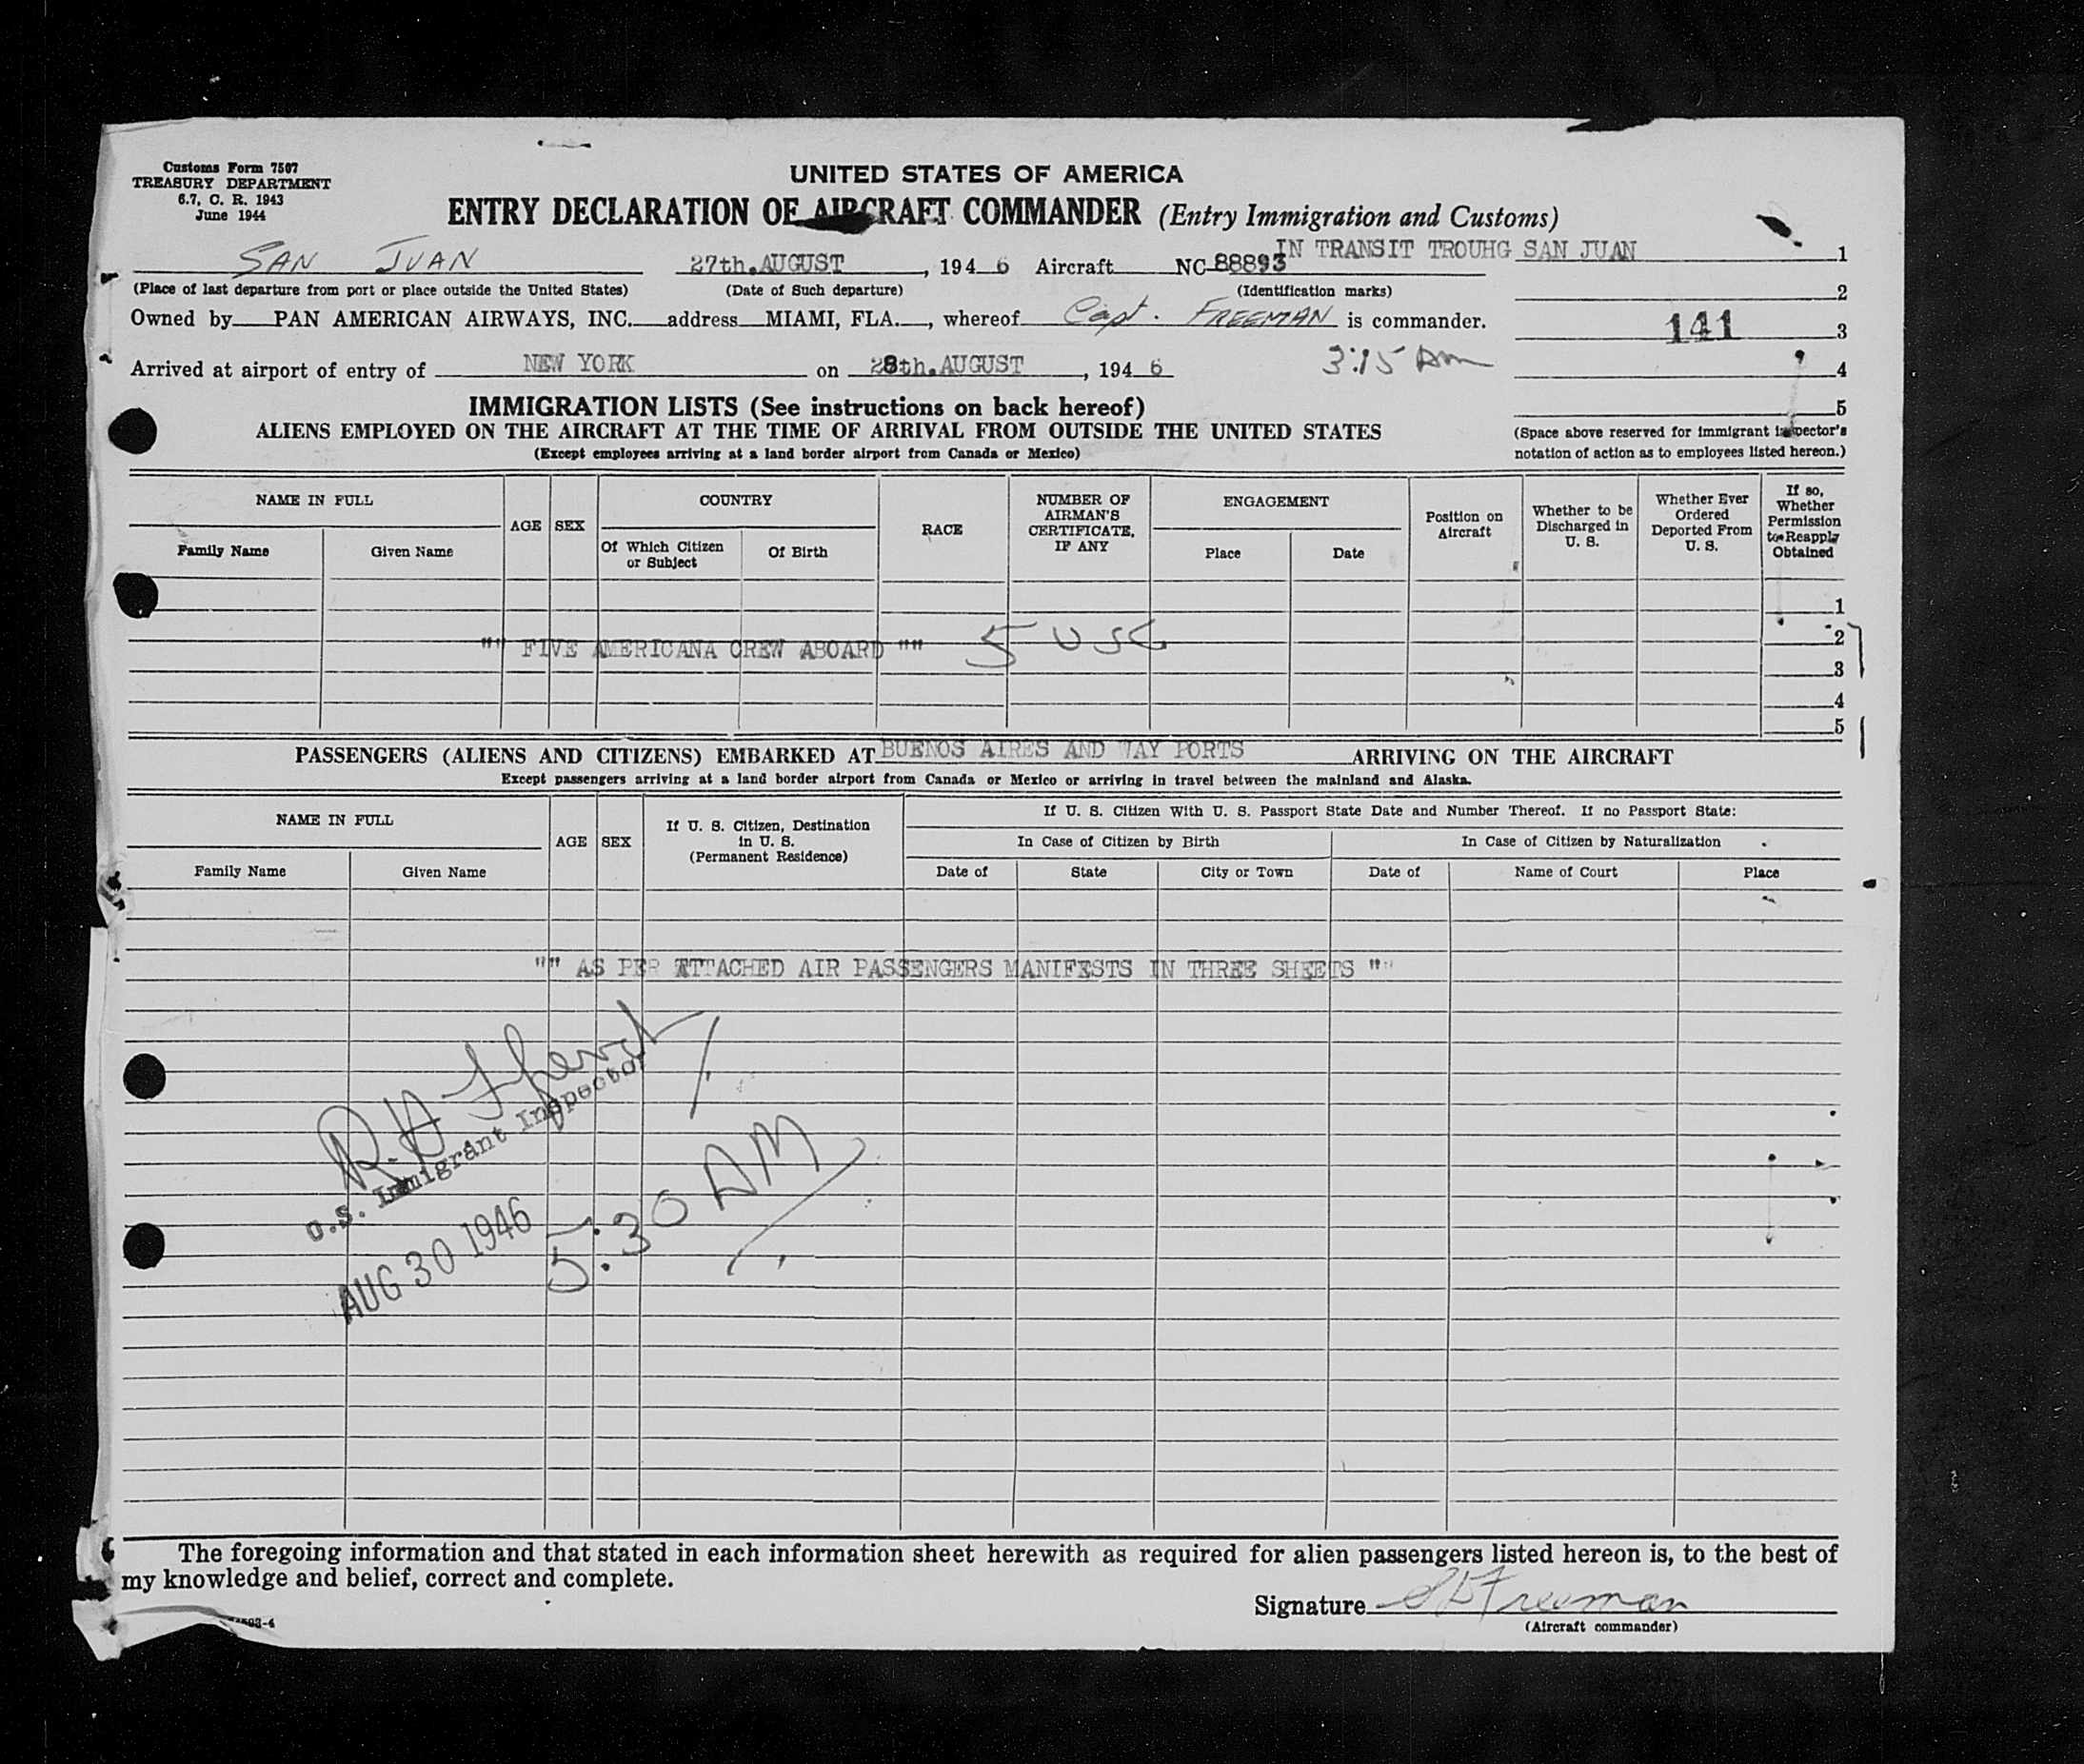 Customs Form 7507
TREASURY DEPARTMENT
6.7, C. R. 1943
June 1944
UNITED STATES OF AMERICA
ENTRY DECLARATION OF AIRCRAFT COMMANDER (Entry Immigration and Customs)
IN TRANSIT TROUHG SAN JUAN 1
SAN JUAN 27th.AUGUST, 194 6 Aircraft NC-88893
(Place of last departure from port or place outside the United States) (Date of Such departure) (Identification marks) 2
Owned by PAN AMERICAN AIRWAYS, INC. address MIAMI, FLA., whereof Capt. FREEMAN is commander. 141 3
Arrived at airport of entry of NEW YORK on 28th.AUGUST, 194 6 3:15 Am 4
IMMIGRATION LISTS (See instructions on back hereof) 5
ALIENS EMPLOYED ON THE AIRCRAFT AT THE TIME OF ARRIVAL FROM OUTSIDE THE UNITED STATES
(Except employees arriving at a land border airport from Canada or Mexico)
(Space above reserved for immigrant inspector's
notation of action as to employees listed hereon.)
NAME IN FULL
Family Name Given Name
AGE SEX
COUNTRY
Of Which Citizen
or Subject
Of Birth
RACE
NUMBER OF
AIRMAN'S
CERTIFICATE,
IF ANY
ENGAGEMENT
Place Date
Position on
Aircraft
Whether to be
Discharged in
U. S.
Whether Ever
Ordered
Deported From
U. S.
If so,
Whether
Permission
to Reapply
Obtained
1
2
"" FIVE AMERICANA CREW ABOARD "" 5 USC
3
4
5
PASSENGERS (ALIENS AND CITIZENS) EMBARKED AT BUENOS AIRES AND WAY PORTS ARRIVING ON THE AIRCRAFT
Except passengers arriving at a land border airport from Canada or Mexico or arriving in travel between the mainland and Alaska.
NAME IN FULL
Family Name Given Name
AGE SEX
If U. S. Citizen, Destination
in U. S.
(Permanent Residence)
If U. S. Citizen With U. S. Passport State Date and Number Thereof. If no Passport State:
In Case of Citizen by Birth In Case of Citizen by Naturalization
Date of State City or Town Date of Name of Court Place
"" AS PER ATTACHED AIR PASSENGERS MANIFESTS IN THREE SHEETS ""
R. H.
U.S. Immigrant Inspector
AUG 30 1946
5:30 AM
The foregoing information and that stated in each information sheet herewith as required for alien passengers listed hereon is, to the best of
my knowledge and belief, correct and complete.
Signature Freeman
(Aircraft commander)